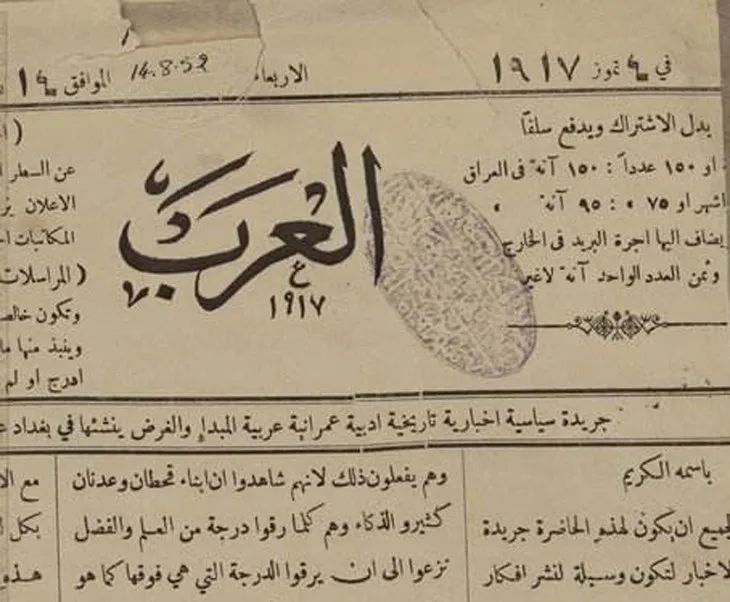 في ٤ تموز ١٩١٧
الاربعاء
14.8.52
الموافق ١٤
بدل الاشتراك ويدفع سلفاً
او ١٥٠ عدداً : ١٥٠ آنة في العراق
اشهر او ٧٥ » : ٩٥ آنة » »
يضاف اليها اجرة البريد في الخارج
وثمن العدد الواحد آنة لاغير
العرب
١٩١٧
عن السطر
الاعلان
المكاتبات
( المراسلات
وتكون خالص
وينبذ منها ما
ادرج او لم
جريدة سياسية اخبارية تاريخية ادبية عمرانية عربية المبدإ والغرض ينشئها في بغداد
باسمه الكريم
ان يكون لهذه الحاضرة جريدة
لتكون وسيلة لنشر افكار
وهم يفعلون ذلك لانهم شاهدوا ان ابناء قحطان وعدنان
كثيرو الذكاء وهم كلما رقوا درجة من العلم والفضل
نزعوا الى ان يرقوا الدرجة التي هي فوقها كما هو
مع
بكل